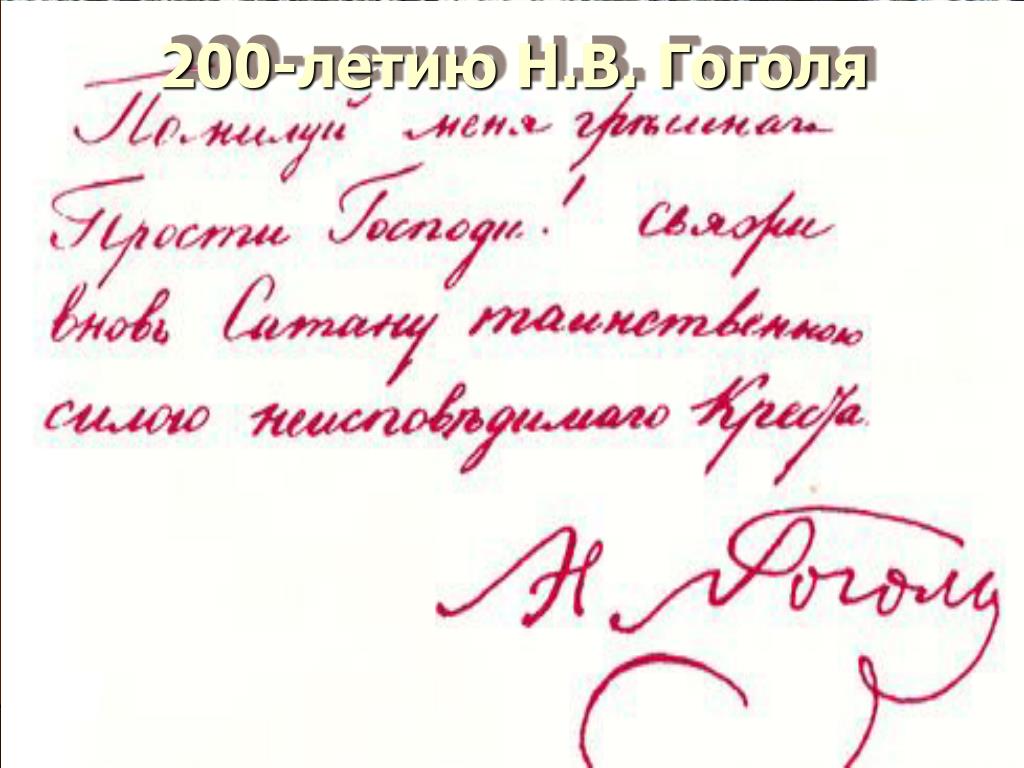 200-летию Н.В. Гоголя
Помилуй меня грѣшнаго
Прости Господи! свяжи
вновь Сатану таинственною
силою неисповѣдимаго Креста.
Н Гоголь